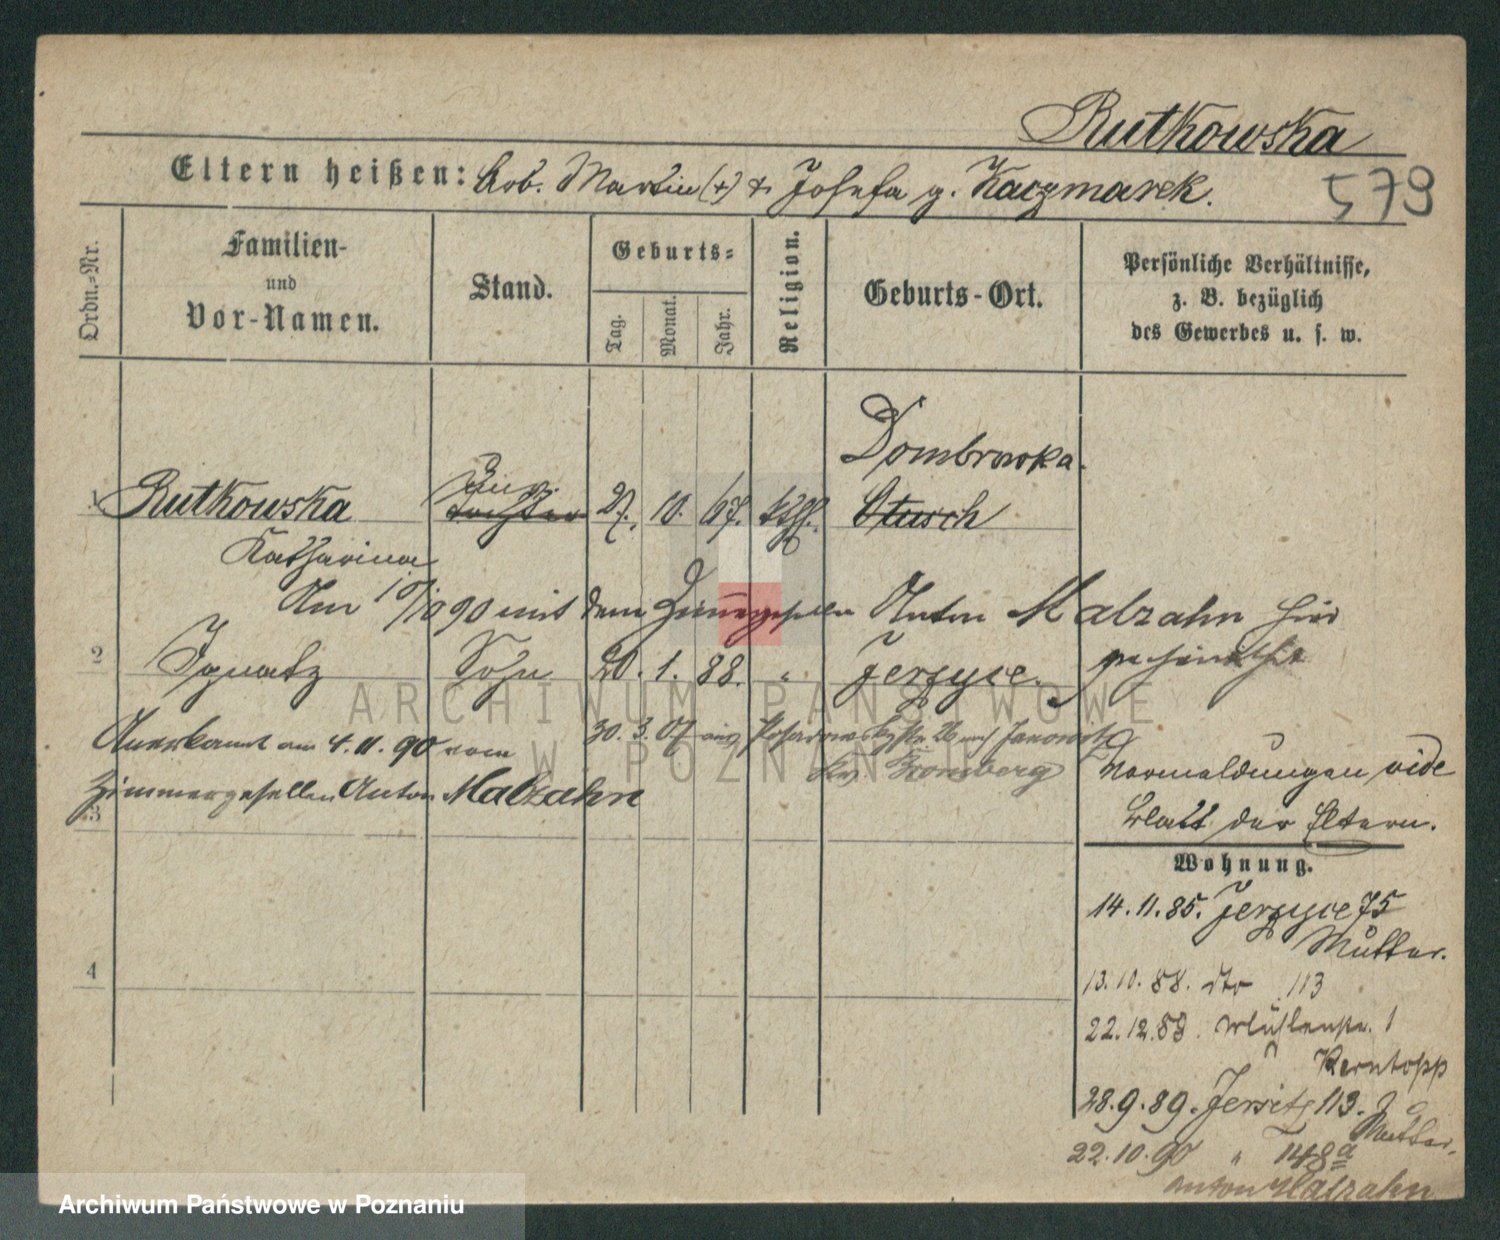 Rutkowska
Eltern heißen: Arb. Martin (+) & Josefa g. Kaczmarek.
579
Ordn.-Nr.
Familien- und Vor-Namen.
Stand.
Geburts-
Tag.
Monat.
Jahr.
Religion.
Geburts-Ort.
Persönliche Verhältnisse,
z. B. bezüglich
des Gewerbes u. s. w.
Dombrowka.
1 Rutkowska Tochter 27. 10. 67. kath. Stusch
Katharina
Am 10/10 90 mit dem Zimmergesellen Anton Malzahn hier
verheirathet
2 Ignatz Sohn 20. 1. 88. " Jerzyce.
Anerkannt am 4.11.90 vom
Zimmergesellen Anton Malzahn
30. 3. 07 nach Janowitz
Kr. Bromberg
Vormeldungen vide
Blatt der Eltern.
3
Wohnung.
14.11.85. Jerzyce 75
Mutter.
4
13.10.88. dto 113
22.12.88. Mühlenstr. 1
Kerntopp
28.9.89. Jersitz 113.
Mutter.
22.10.90 " 148a
Anton Malzahn
ARCHIWUM PAŃSTWOWE
W POZNANIU
Archiwum Państwowe w Poznaniu